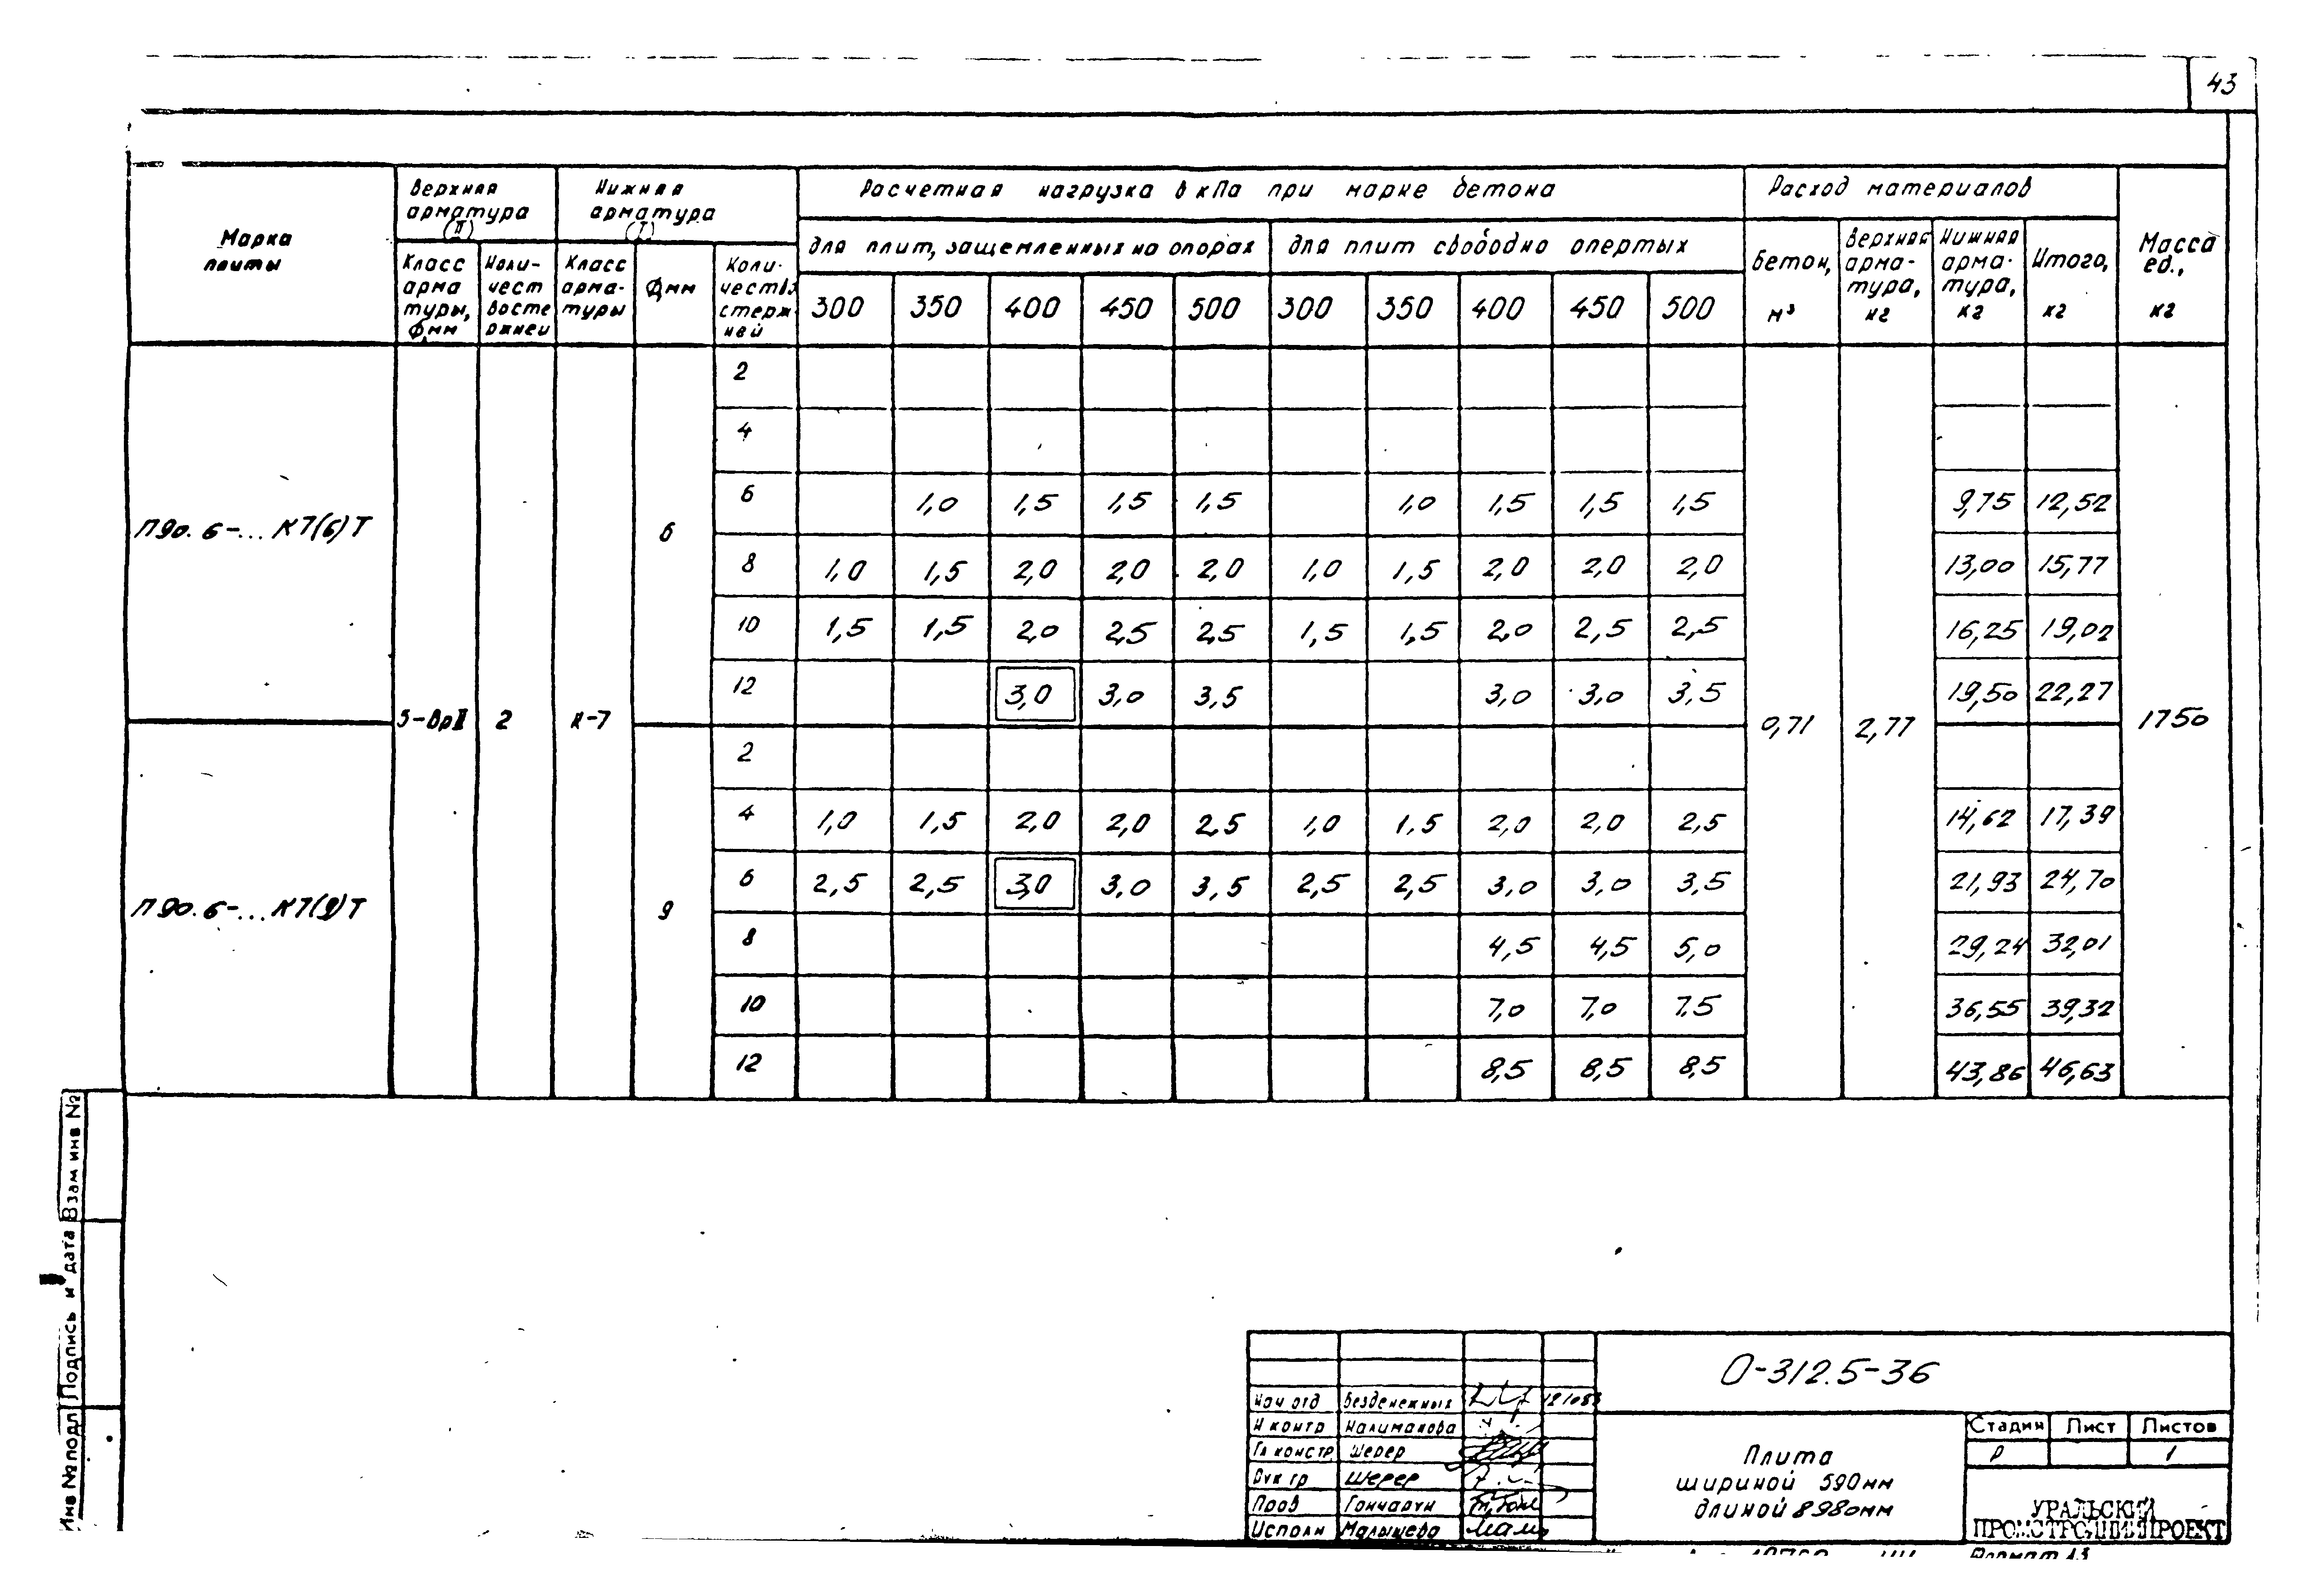 43
Марка плиты
Верхняя арматура (II)
Нижняя арматура (I)
Расчетная нагрузка в кПа при марке бетона
Расход материалов
Масса ед., кг
для плит, защемленных на опорах
для плит свободно опертых
Класс арматуры, Фмм
Количест востержней
Класс арматуры
Фмм
Количество стержней
300 350 400 450 500 300 350 400 450 500
Бетон, м³
Верхняя арматура, кг
Нижняя арматура, кг
Итого, кг
П90.6-...К7(6)Т
5-ВрII 2 К-7 6
0,71 2,77 1750
2
4
6 1,0 1,5 1,5 1,5 1,0 1,5 1,5 1,5 9,75 12,52
8 1,0 1,5 2,0 2,0 2,0 1,0 1,5 2,0 2,0 2,0 13,00 15,77
10 1,5 1,5 2,0 2,5 2,5 1,5 1,5 2,0 2,5 2,5 16,25 19,02
12 3,0 3,0 3,5 3,0 3,0 3,5 19,50 22,27
П90.6-...К7(9)Т
9
2
4 1,0 1,5 2,0 2,0 2,5 1,0 1,5 2,0 2,0 2,5 14,62 17,39
6 2,5 2,5 3,0 3,0 3,5 2,5 2,5 3,0 3,0 3,5 21,93 24,70
8 4,5 4,5 5,0 29,24 32,01
10 7,0 7,0 7.5 36,55 39,32
12 8,5 8,5 8,5 43,86 46,63
Взам инв №
Подпись и дата
Инв № подл
О-312.5-36
Нач отд Безденежных
Н контр Налимакова
Гл констр Шерер
Рук гр Шерер
Пров Гончарун
Исполн Малышева
Плита
шириной 590мм
длиной 8980мм
Стадия Лист Листов
Р 1
УРАЛЬСКИЙ
ПРОМСТРОЙНИИПРОЕКТ
Формат А3